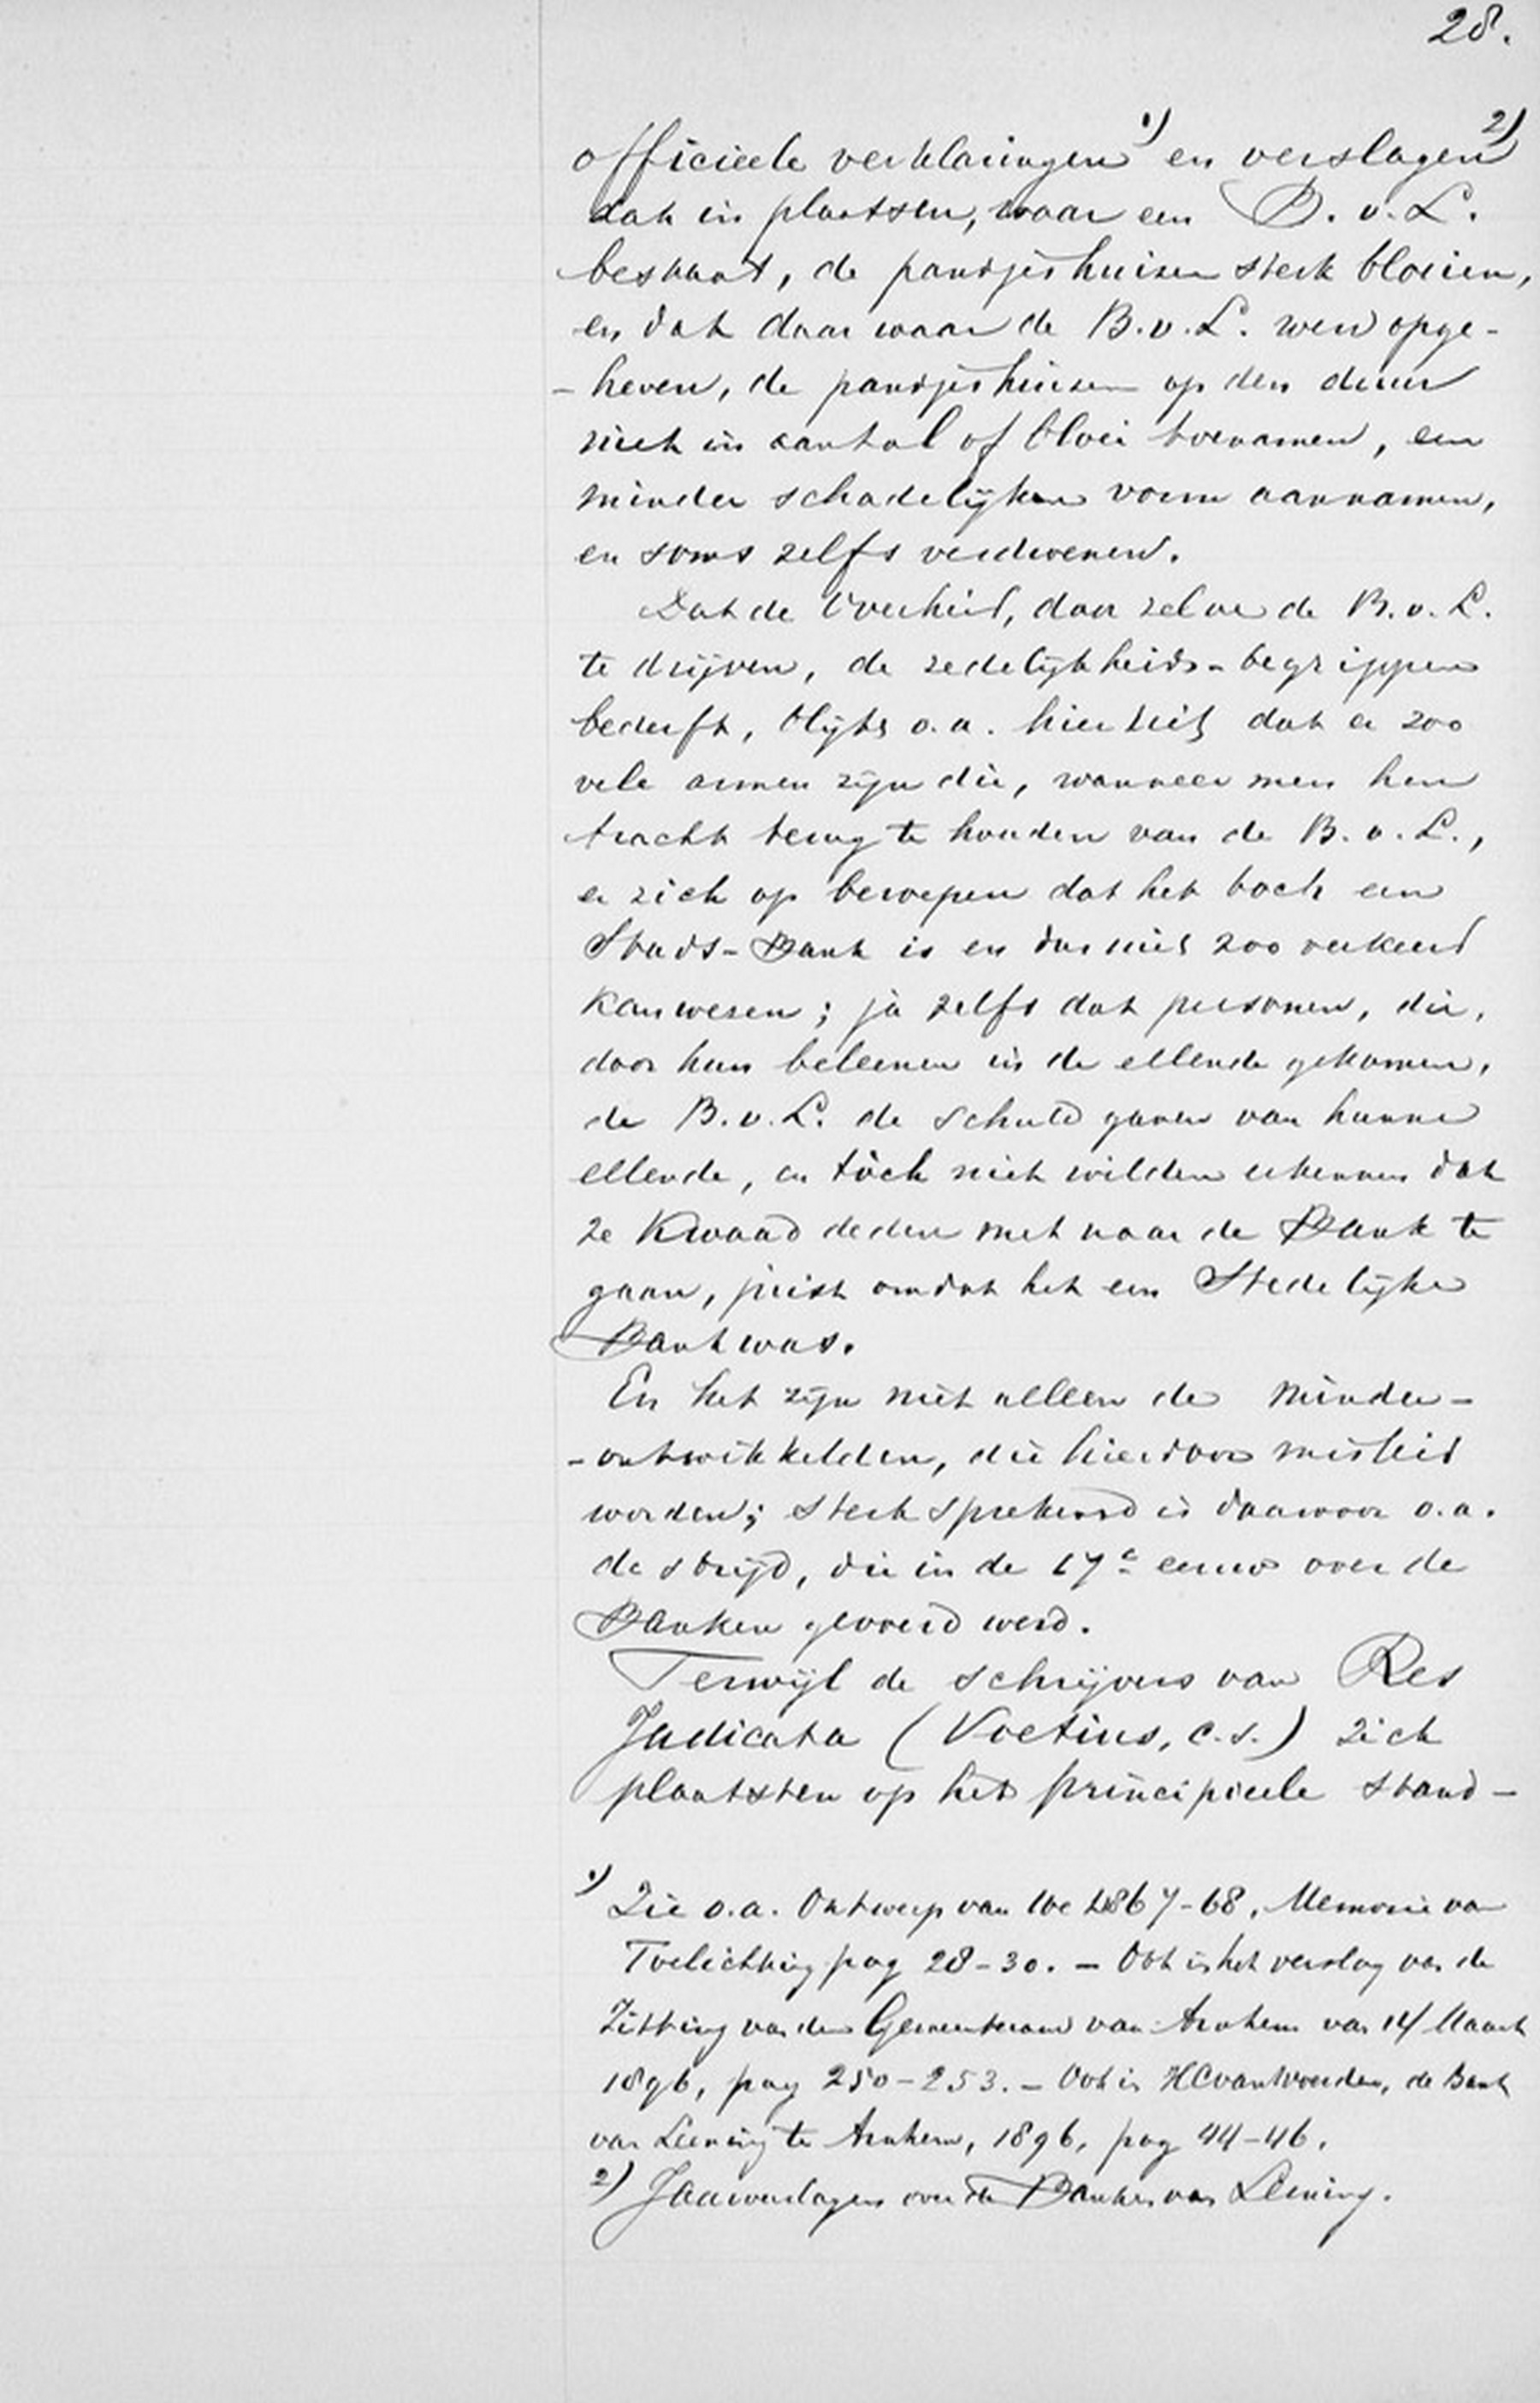 28.
officieele verklaringen 1) en verslagen 2)
dat in plaatsen, waar een B. v. L.
bestaat, de pandjeshuizen sterk bloeien,
en dat daar waar de B. v. L. werd opge-
-heven, de pandjeshuizen op den duur
niet in aantal of bloei toenamen, een
minder schadelijken vorm aannamen,
en soms zelfs verdwenen.
Dat de Overheid, door zelve de B. v. L.
te drijven, de zedelijkheids-begrippen
bederft, blijkt o. a. hieruit dat er zoo
vele armen zijn die, wanneer men hen
tracht terug te houden van de B. v. L.,
er zich op beroepen dat het toch een
Stads-Bank is en dus niet zoo verkeerd
kan wezen; ja zelfs dat personen, die,
door hun beleenen in de ellende gekomen,
de B. v. L. de schuld gaven van hunne
ellende, en tòch niet wilden erkennen dat
ze kwaad deden met naar de Bank te
gaan, juist omdat het een Stedelijke
Bank was.
En het zijn niet alleen de minder-
-ontwikkelden, die hierdoor misleid
worden; sterk sprekend is daarvoor o. a.
de strijd, die in de 17e eeuw over de
Banken gevoerd werd.
Terwijl de schrijvers van Res
Judicata (Voetius, c. s.) zich
plaatsten op het principieele stand-
1) Zie o. a. Ontwerp van Wet 1867-68, Memorie van
Toelichting pag 28-30. - Ook in het verslag van de
Zitting van den Gemeenteraad van Arnhem van 14 Maart
1896, pag 250-253. - Ook in H C van Woerden, de Bank
van Leening te Arnhem, 1896, pag 44-46.
2) Jaarverslagen over de Banken van Leening.